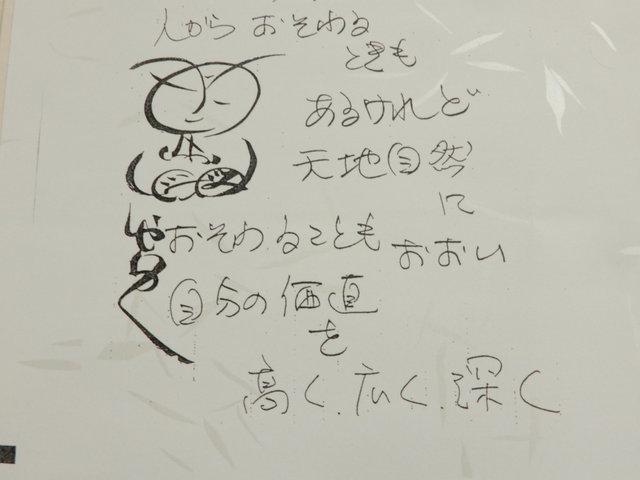 人から おそわる
ときも
あるけれど
天地自然
に
おそわることも おおい
自分の価値
を
高く、広く、深く